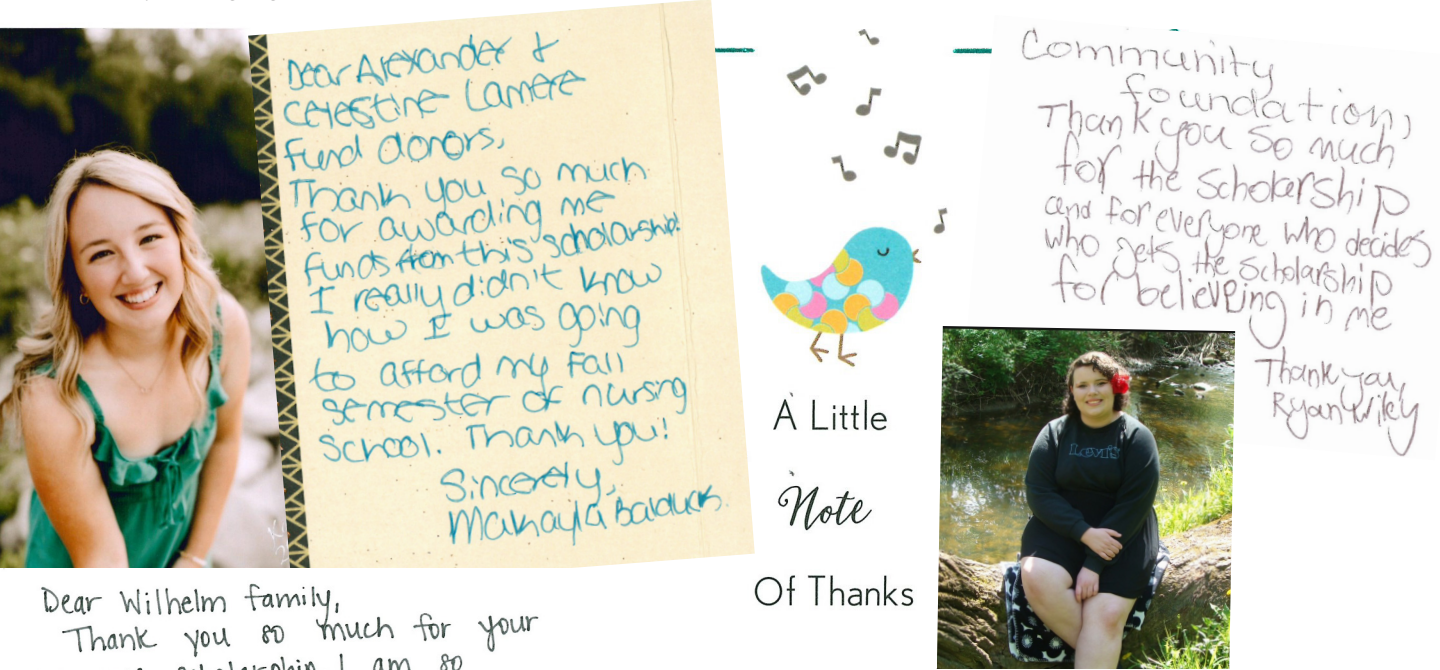 Dear Alexander &
Celestine Lamere
fund donors,
Thank you so much
for awarding me
funds from this scholarship!
I really didn't know
how I was going
to afford my Fall
semester of nursing
School. Thank you!
Sincerely,
Makayla Balduck.
A Little
Note
Of Thanks
Community
foundation,
Thank you so much
for the scholarship
and for everyone who decides
who gets the scholarship
for believeing in me
Thank you,
Ryan Wiley
Levi's
Dear Wilhelm family,
Thank you so much for your
scholarship I am so